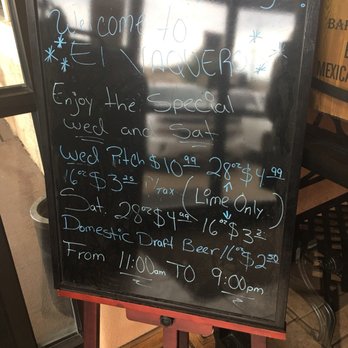 Welcome to
El Vaquero
Enjoy the Special
wed and Sat
Wed Pitch $10.99 28oz $4.99
16oz $3.25 (Lime Only)
Sat. 28oz $4.99 16oz $3.2
Domestic Draft Beer/16oz $2.50
From 11:00am TO 9:00pm
BAR
MEXICA